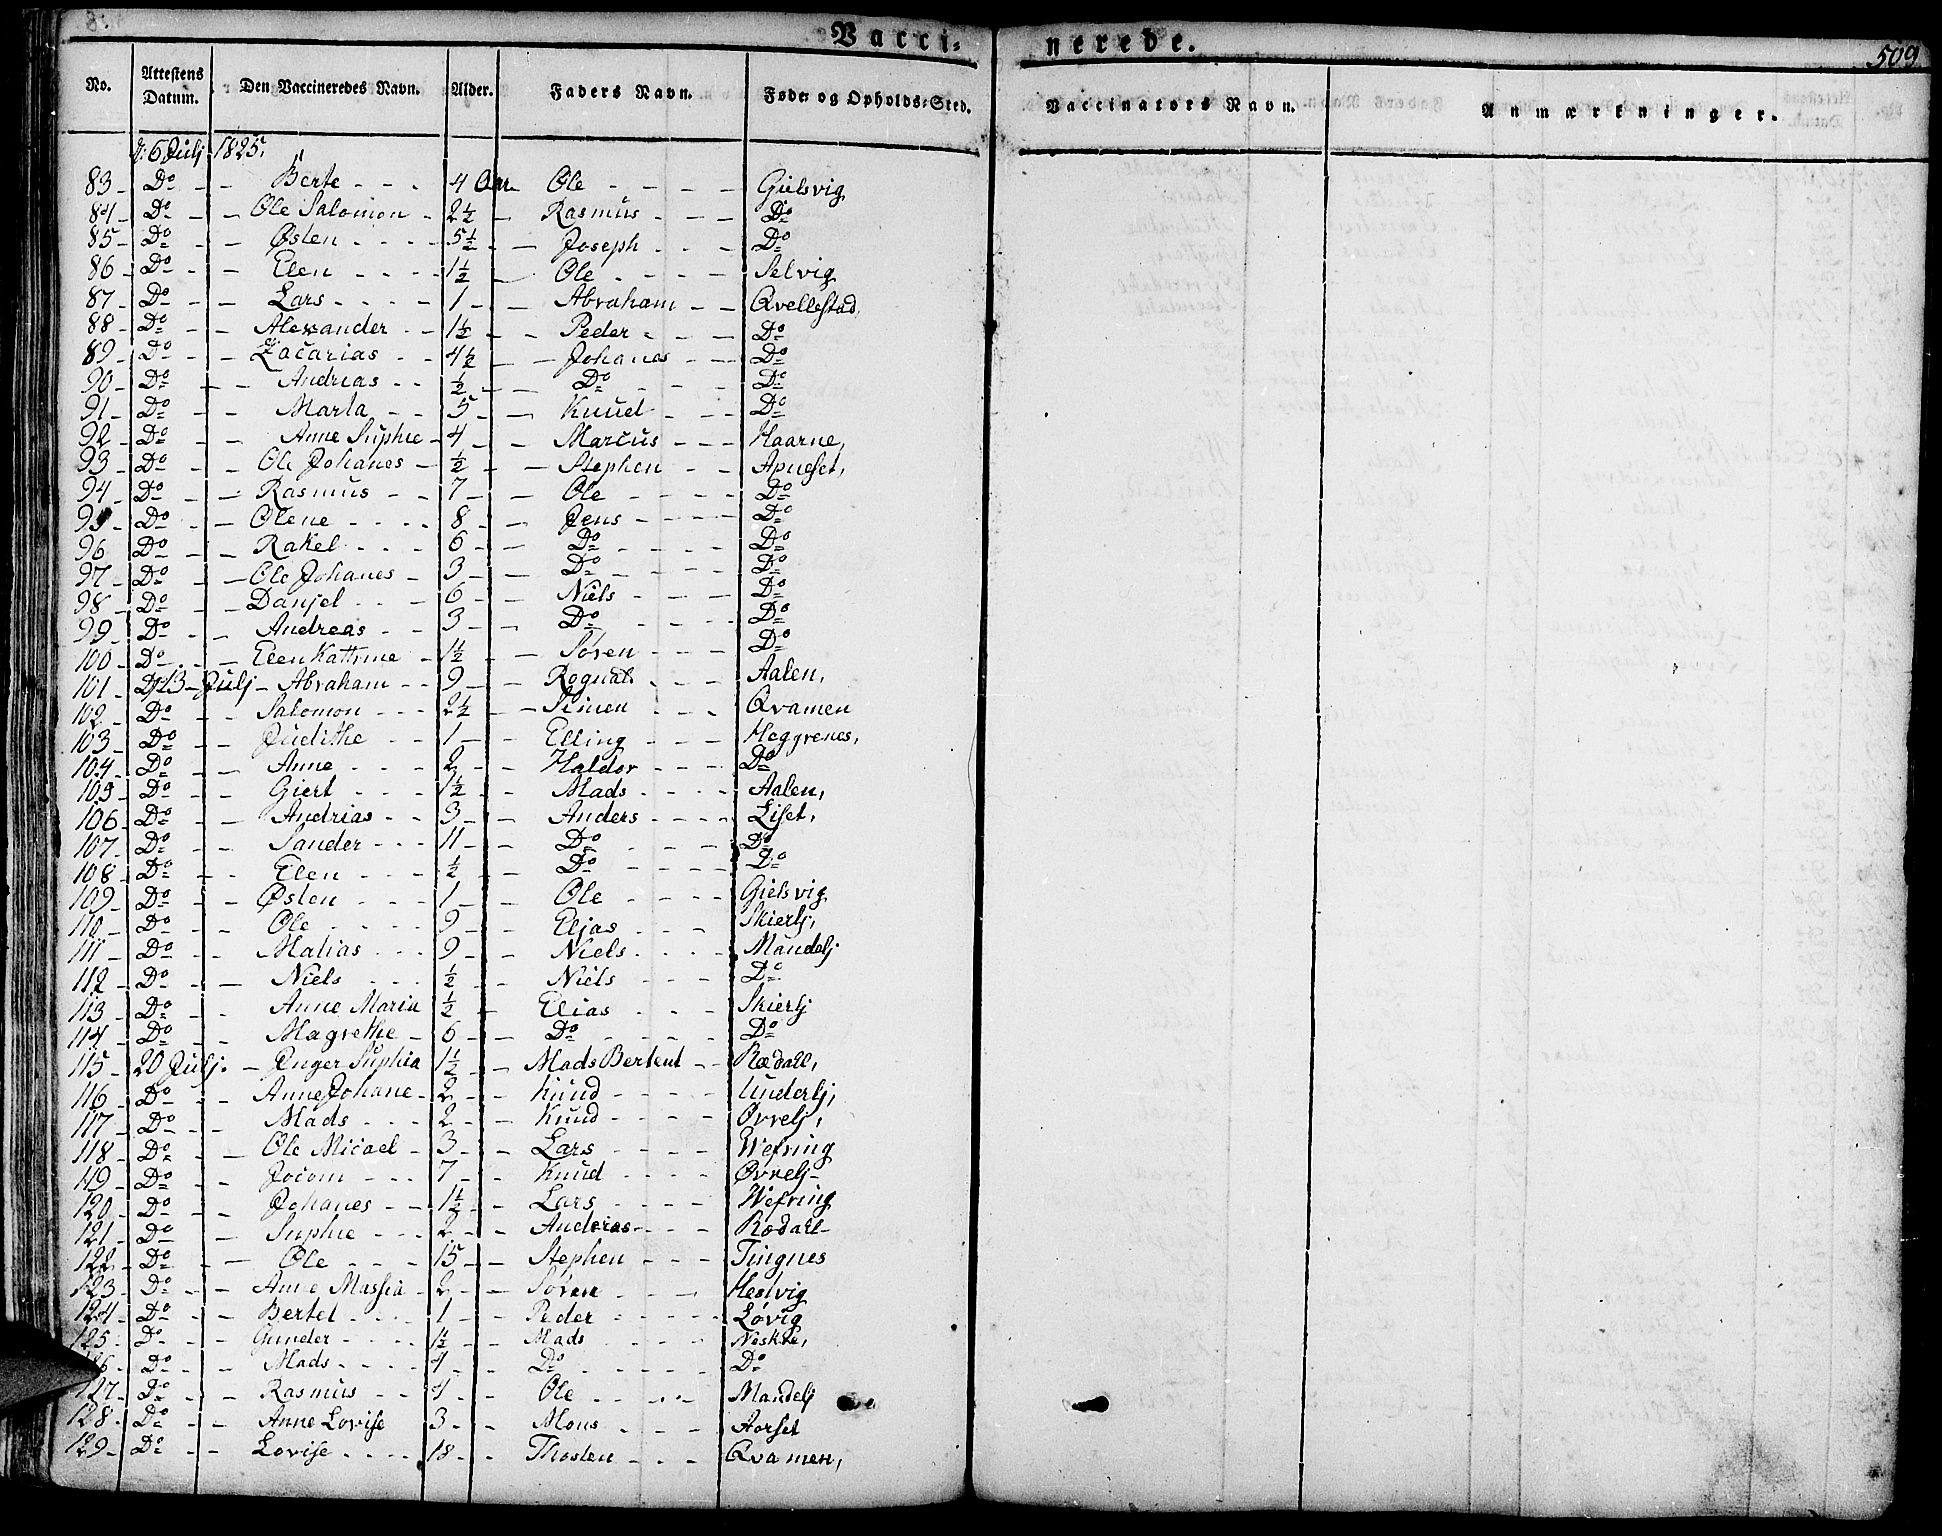 Vaccinerede. 509
No. | Attestens Datum. | Den Vaccineredes Navn. | Alder. | Faders Navn. | Føde- og Opholds-Sted. | Vaccinators Navn. | Anmærkninger.
d: 6 Julj 1825.
83 - Do - - Berte - - - 4 Aar - Ole - - - - Gielsvig
84 - Do - - Ole Salomon - 2½ - Rasmus - - - Do
85 - Do - - Østen - - - - 5½ - - Joseph - - - Do
86 - Do - - Elen - - - - 1½ - Ole - - - - Selvig
87 - Do - - Lars - - - - 1 - - Abraham - - Qvellestad
88 - Do - - Alexander - - 1½ - - Peder - - - Do
89 - Do - - Zacarias - - 4½ - - Johanes - - Do
90 - Do - - Andrias - - ½ - - Do - - - Do
91 - Do - - Marta - - 5 - - Knud - - - Do
92 - Do - - Anne Suphie - 4 - - Marcus - - - Haarne,
93 - Do - - Ole Johanes - ½ - - Stephen - - Apneset,
94 - Do - - Rasmus - - 7 - - Ole - - - - Do
95 - Do - - Olene - - - - 8 - - Jens - - - - Do
96 Do - - Rakel - - - 6 - - Do - - - - Do
97 - Do - - Ole Johanes - 3 - - Do - - - - Do
98 - Do - - Danjel - - - 6 - - Niels - - - - Do
99 - Do - - Andreas - - 3 - - Do - - - - Do
100 - Do - - Elen Kathrine - 1½ - - Søren - - - Do
101 - D: 13 - Julj - Abraham - - 9 - - Rognal - - - Aalen,
102 - Do - - Salomon - - - 2½ - - Simen - - - Qvamen
103 - Do - - Judithe - - - 1 - - Elling - - - Heggrenes,
104 - Do - - Anne - - - 2 - - Haldor - - - Do
105 - Do - - Giert - - - 1½ - - Mads - - - - Aalen,
106 - Do - - Andrias - - 3 - - Anders - - - - Liset,
107 - Do - - Sander - - - 11 - - Do - - - Do
108 - Do - - Elen - - - ½ - - Do - - - - Do
109 - Do - - Østen - - - 1 - - Ole - - - - Gielsvig
110 - Do - - Ole - - - - 9 - - Eljas - - - Skierlj,
111 - Do - - Matias - - - 9 - - Niels - - - - Mandalj
112 - Do - - Niels - - - ½ - - Niels - - - - Do
113 - Do - - Anne Maria ½ - Elias - - - Skierlj
114 - Do - - Magrethe - 6 - - Do - - - Do
115 - 20 Julj. - Inger Suphia 1½ - - Mads Bertent - - Rædall,
116 - Do - - Anne Johane - 2 - - Knud - - - - Underlj,
117 - Do - - Mads - - - 2 - - Knud - - - - Øvrelj,
118 - Do - - Ole Micael - 3 - - Lars - - - - Wefring
119 - Do - - Jocom - - - 7 - - Knud - - - - Øvrelj -
120 - Do - - Johanes - - 1½ - - Lars - - - - Wefring
121 - Do - - Suphie - - - 2 - - Anderias - - - - Rædall -
122 - Do - - Ole - - - 15 - - Stephen - - - Tingnes
123 - Do - - Anne Massia - 2 - - Søren - - - Hesvig
124 - Do - - Bertel - - - - 1 - - Peder - - - - Løvig
125 - Do - - Gunder - - - - 1½ - - Mads - - - - Neskke,
126 - Do - - Mads - - - - 4 - - Do - - - - Do
127 - Do - - Rasmus - - 4 - - Ole - - - - Mandelj
128 - Do - - Anne Lovise 3 - - Mons - - - Aorset
129 - Do - - Lovise - - - - 18 - - Thosten - - - Qvamen,